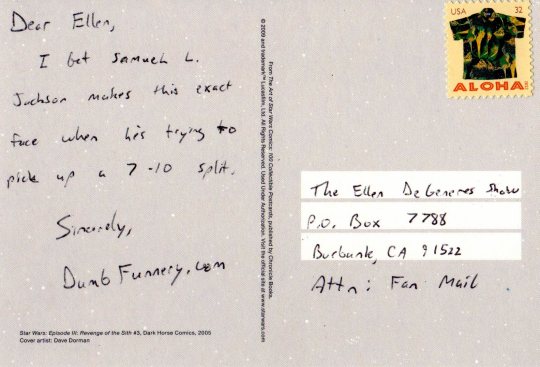 Dear Ellen,
I bet Samuel L.
Jackson makes this exact
face when he's trying to
pick up a 7-10 split.
Sincerely,
DumbFunnery.com
Star Wars: Episode III: Revenge of the Sith #3, Dark Horse Comics, 2005
Cover artist: Dave Dorman
From The Art of Star Wars Comics: 100 Collectible Postcards, published by Chronicle Books.
© 2009 and trademark™ Lucasfilm, Ltd. All Rights Reserved. Used Under Authorization. Visit the official site at www.starwars.com
USA 32
ALOHA
The Ellen DeGeneres Show
P.O. Box 7788
Burbank, CA 91522
Attn: Fan Mail